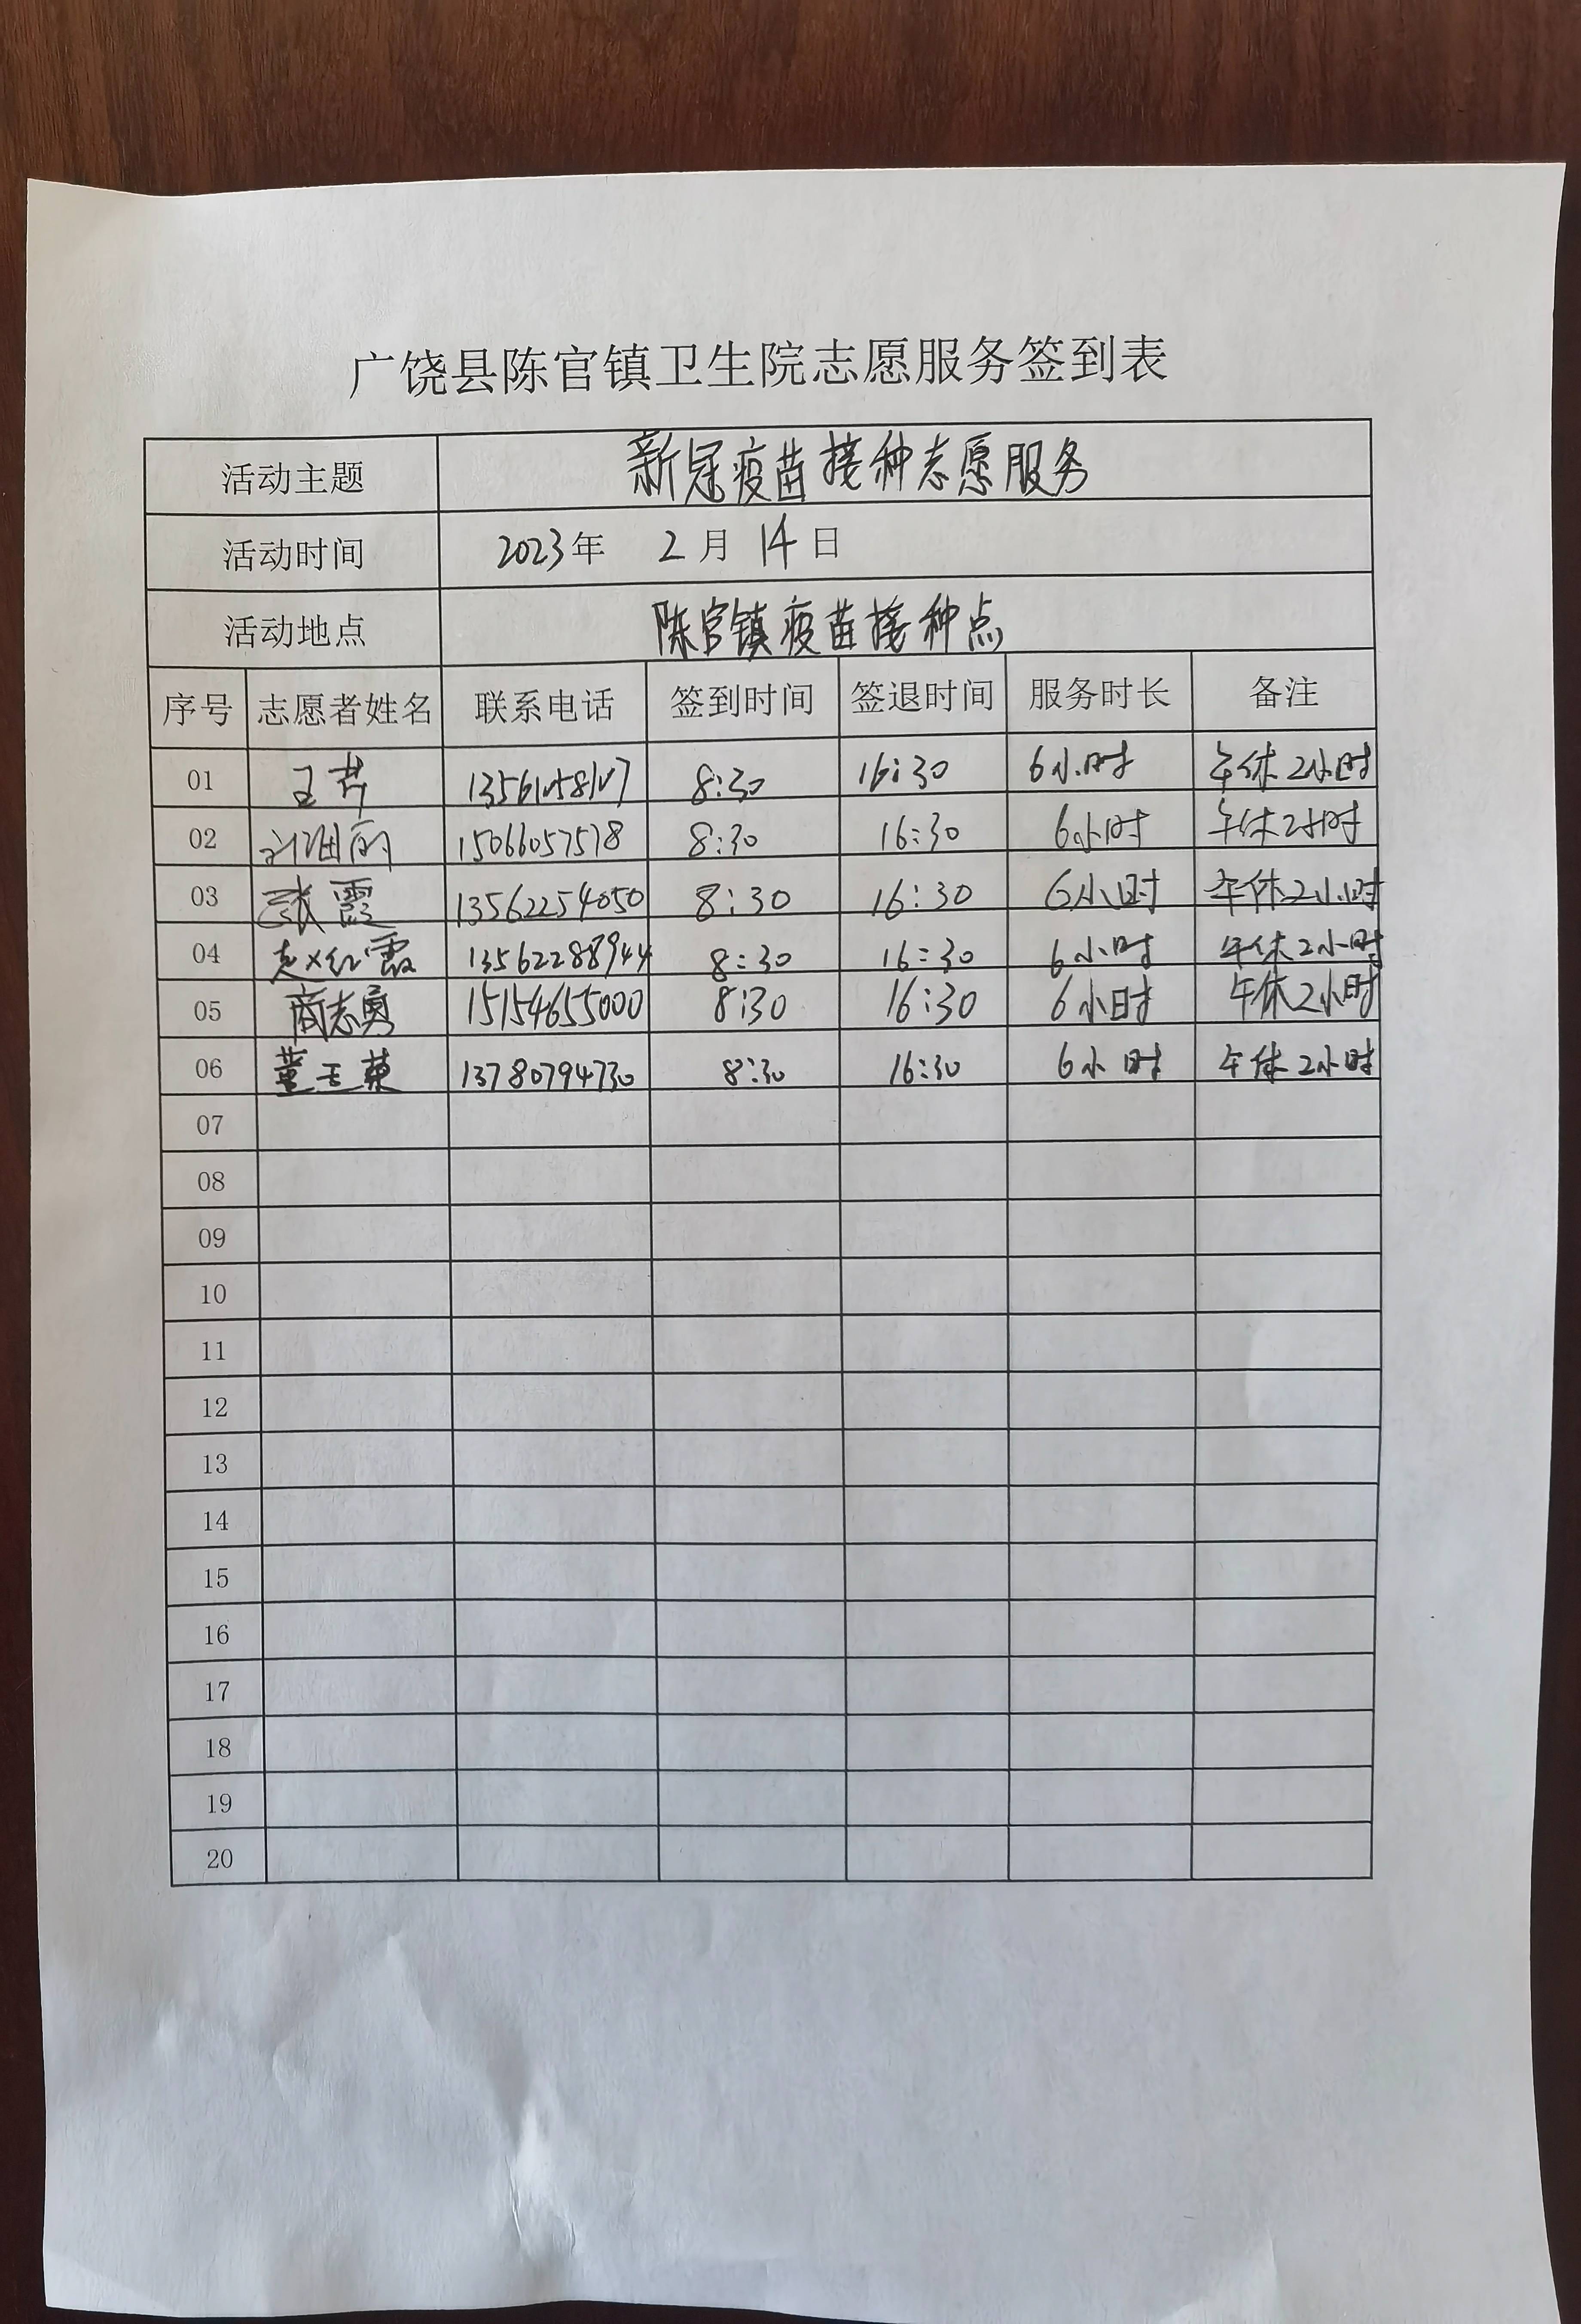 广饶县陈官镇卫生院志愿服务签到表
活动主题 新冠疫苗接种志愿服务
活动时间 2023年 2月14日
活动地点 陈官镇疫苗接种点
序号 志愿者姓名 联系电话 签到时间 签退时间 服务时长 备注
01 王芹 8:30 16:30 6小时 午休2小时
02 15066057578 8:30 16:30 6小时 午休2小时
03 张霞 13562254050 8:30 16:30 6小时 午休2小时
04 赵红霞 13562288944 8:30 16:30 6小时 午休2小时
05 商志勇 15154655000 8:30 16:30 6小时 午休2小时
06 董玉荣 13780794730 8:30 16:30 6小时 午休2小时
07
08
09
10
11
12
13
14
15
16
17
18
19
20